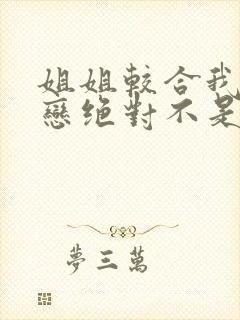 姐姐較合我
戀絕對不是
夢三萬